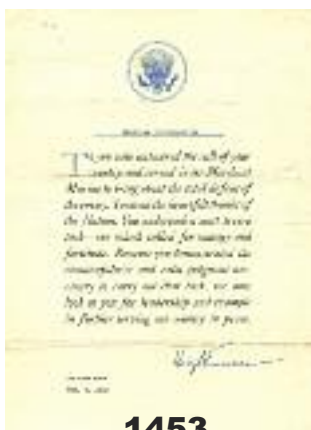 To you who answered the call of your
country and served in its Merchant
Marine to bring about the total defeat of
the enemy, I extend the heartfelt thanks of
the Nation. You undertook a most severe
task—one which called for courage and
fortitude. Because you demonstrated the
resourcefulness and calm judgment nec-
essary to carry out that task, we now
look to you for leadership and example
in further serving our country in peace.
Harry Truman
THE WHITE HOUSE
1453